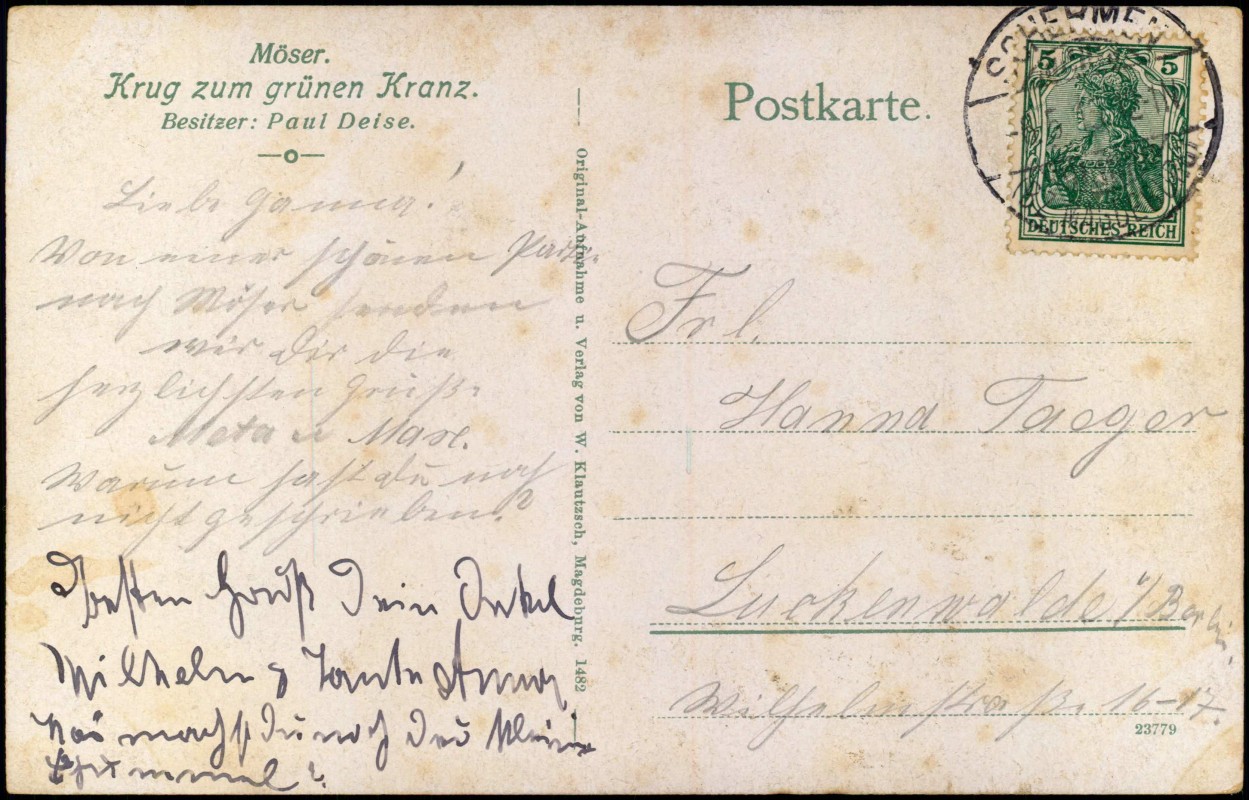 Möser.
Krug zum grünen Kranz.
Besitzer: Paul Deise.
Liebe Hanna!
Von einer schönen Partie
nach Möser senden
wir Dir die
herzlichsten Grüße
Meta u Max.
Warum hast du noch
nicht geschrieben?
Besten Gruß Dein Onkel
Wilhelm & Tante Anna
machst du noch Du kleine
Original-Aufnahme u. Verlag von W. Klautzsch, Magdeburg. 1482
Postkarte.
SCHERMEN
5 5
DEUTSCHES REICH
Frl.
Hanna Taeger
Luckenwalde b/Berlin.
Wilhelmstraße 16-17.
23779